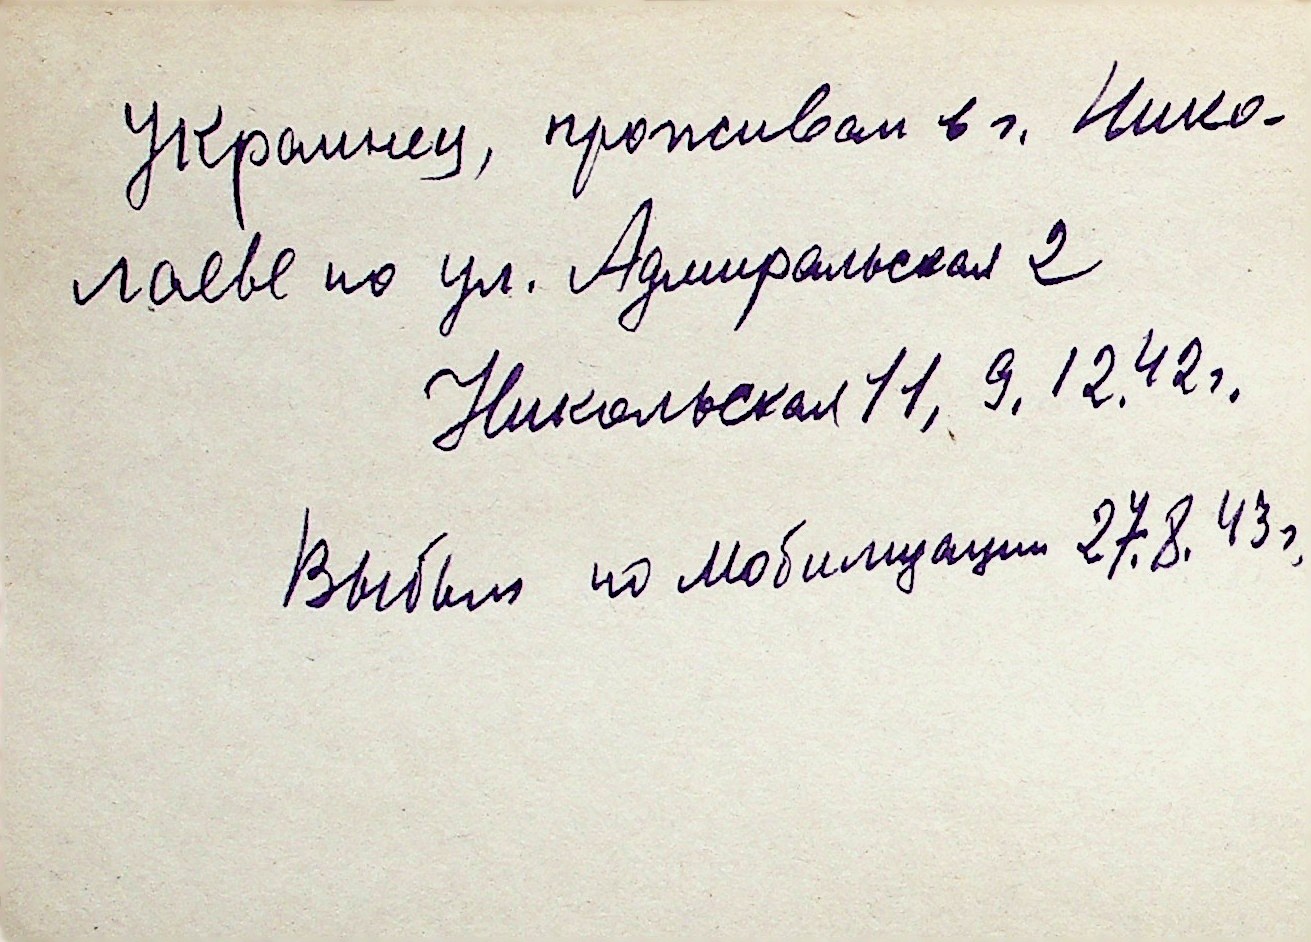 Украинец, проживал в г. Нико-
лаеве по ул. Адмиральская 2
Никольская 11, 9.12.42г.
Выбыл по мобилизации 27.8.43г.